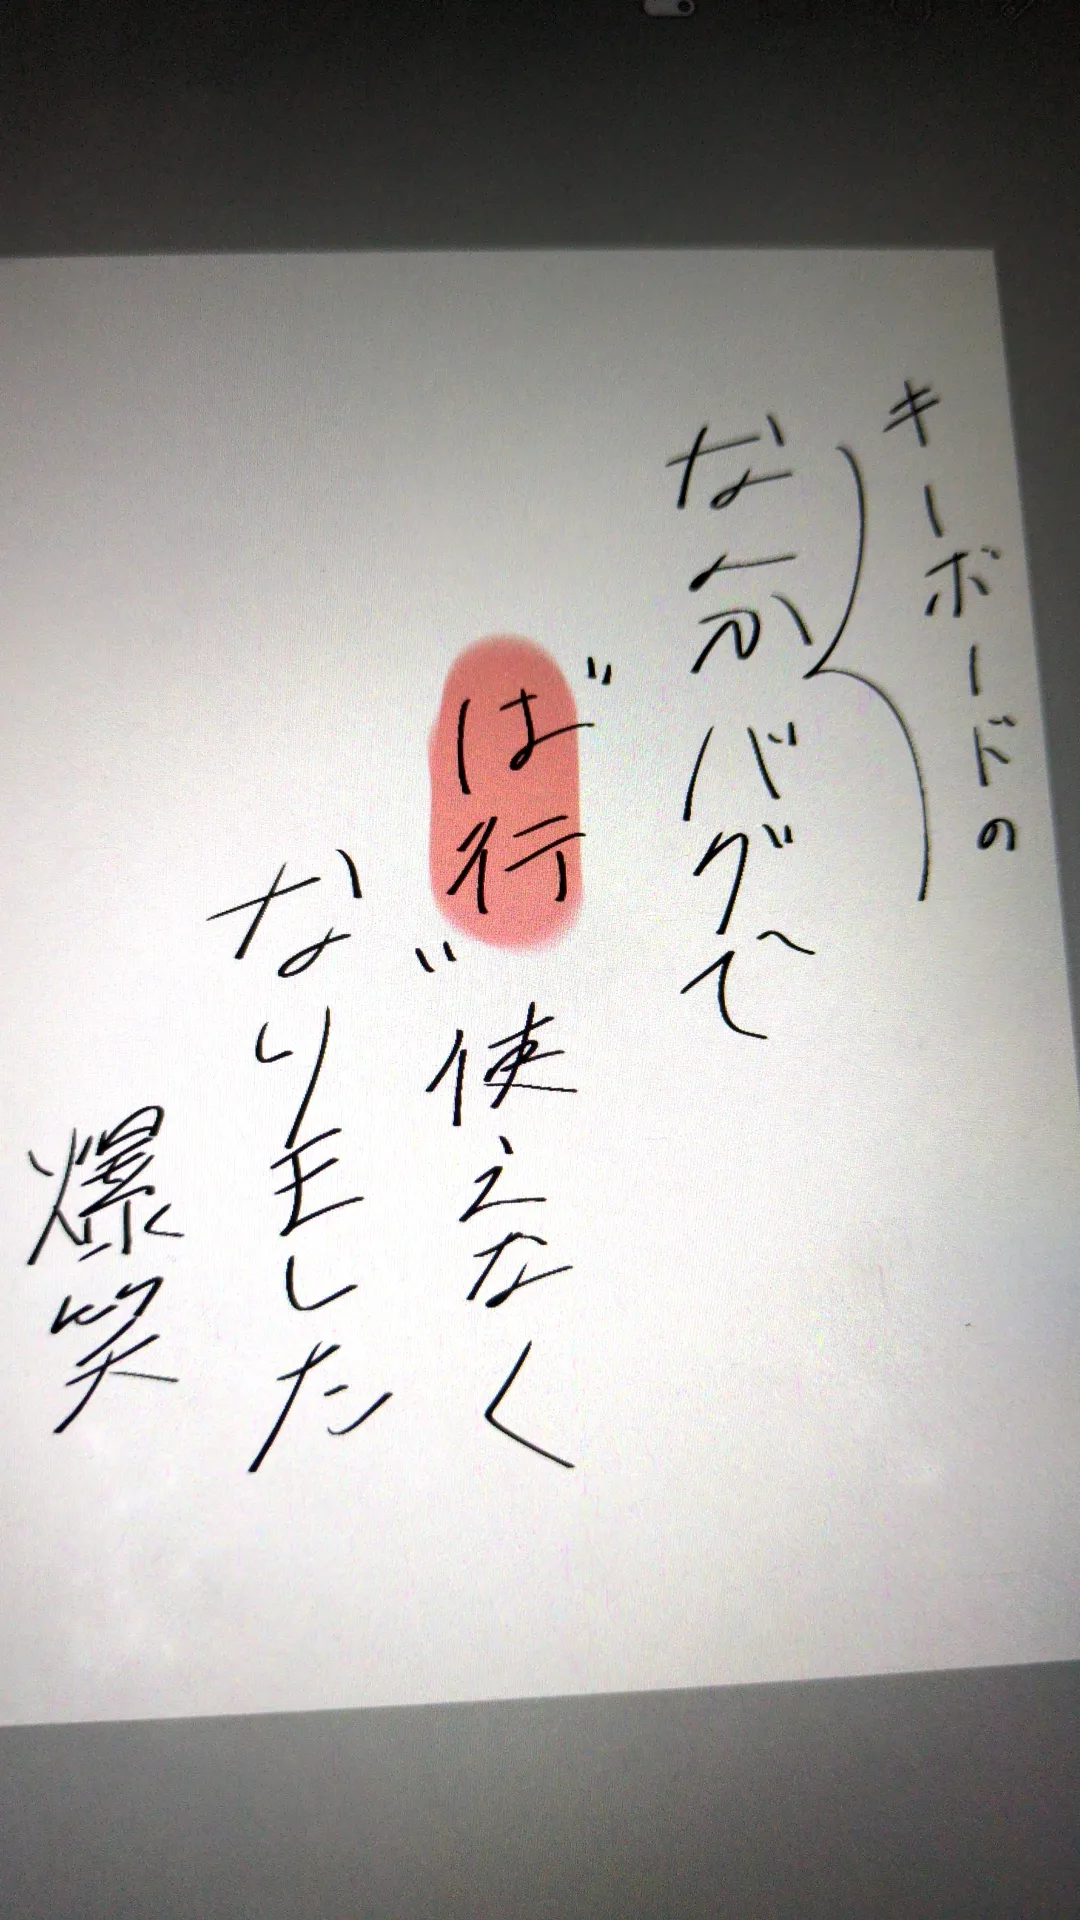 キーボードの
なんかバグで
"は行"使えなく
なりました
爆笑